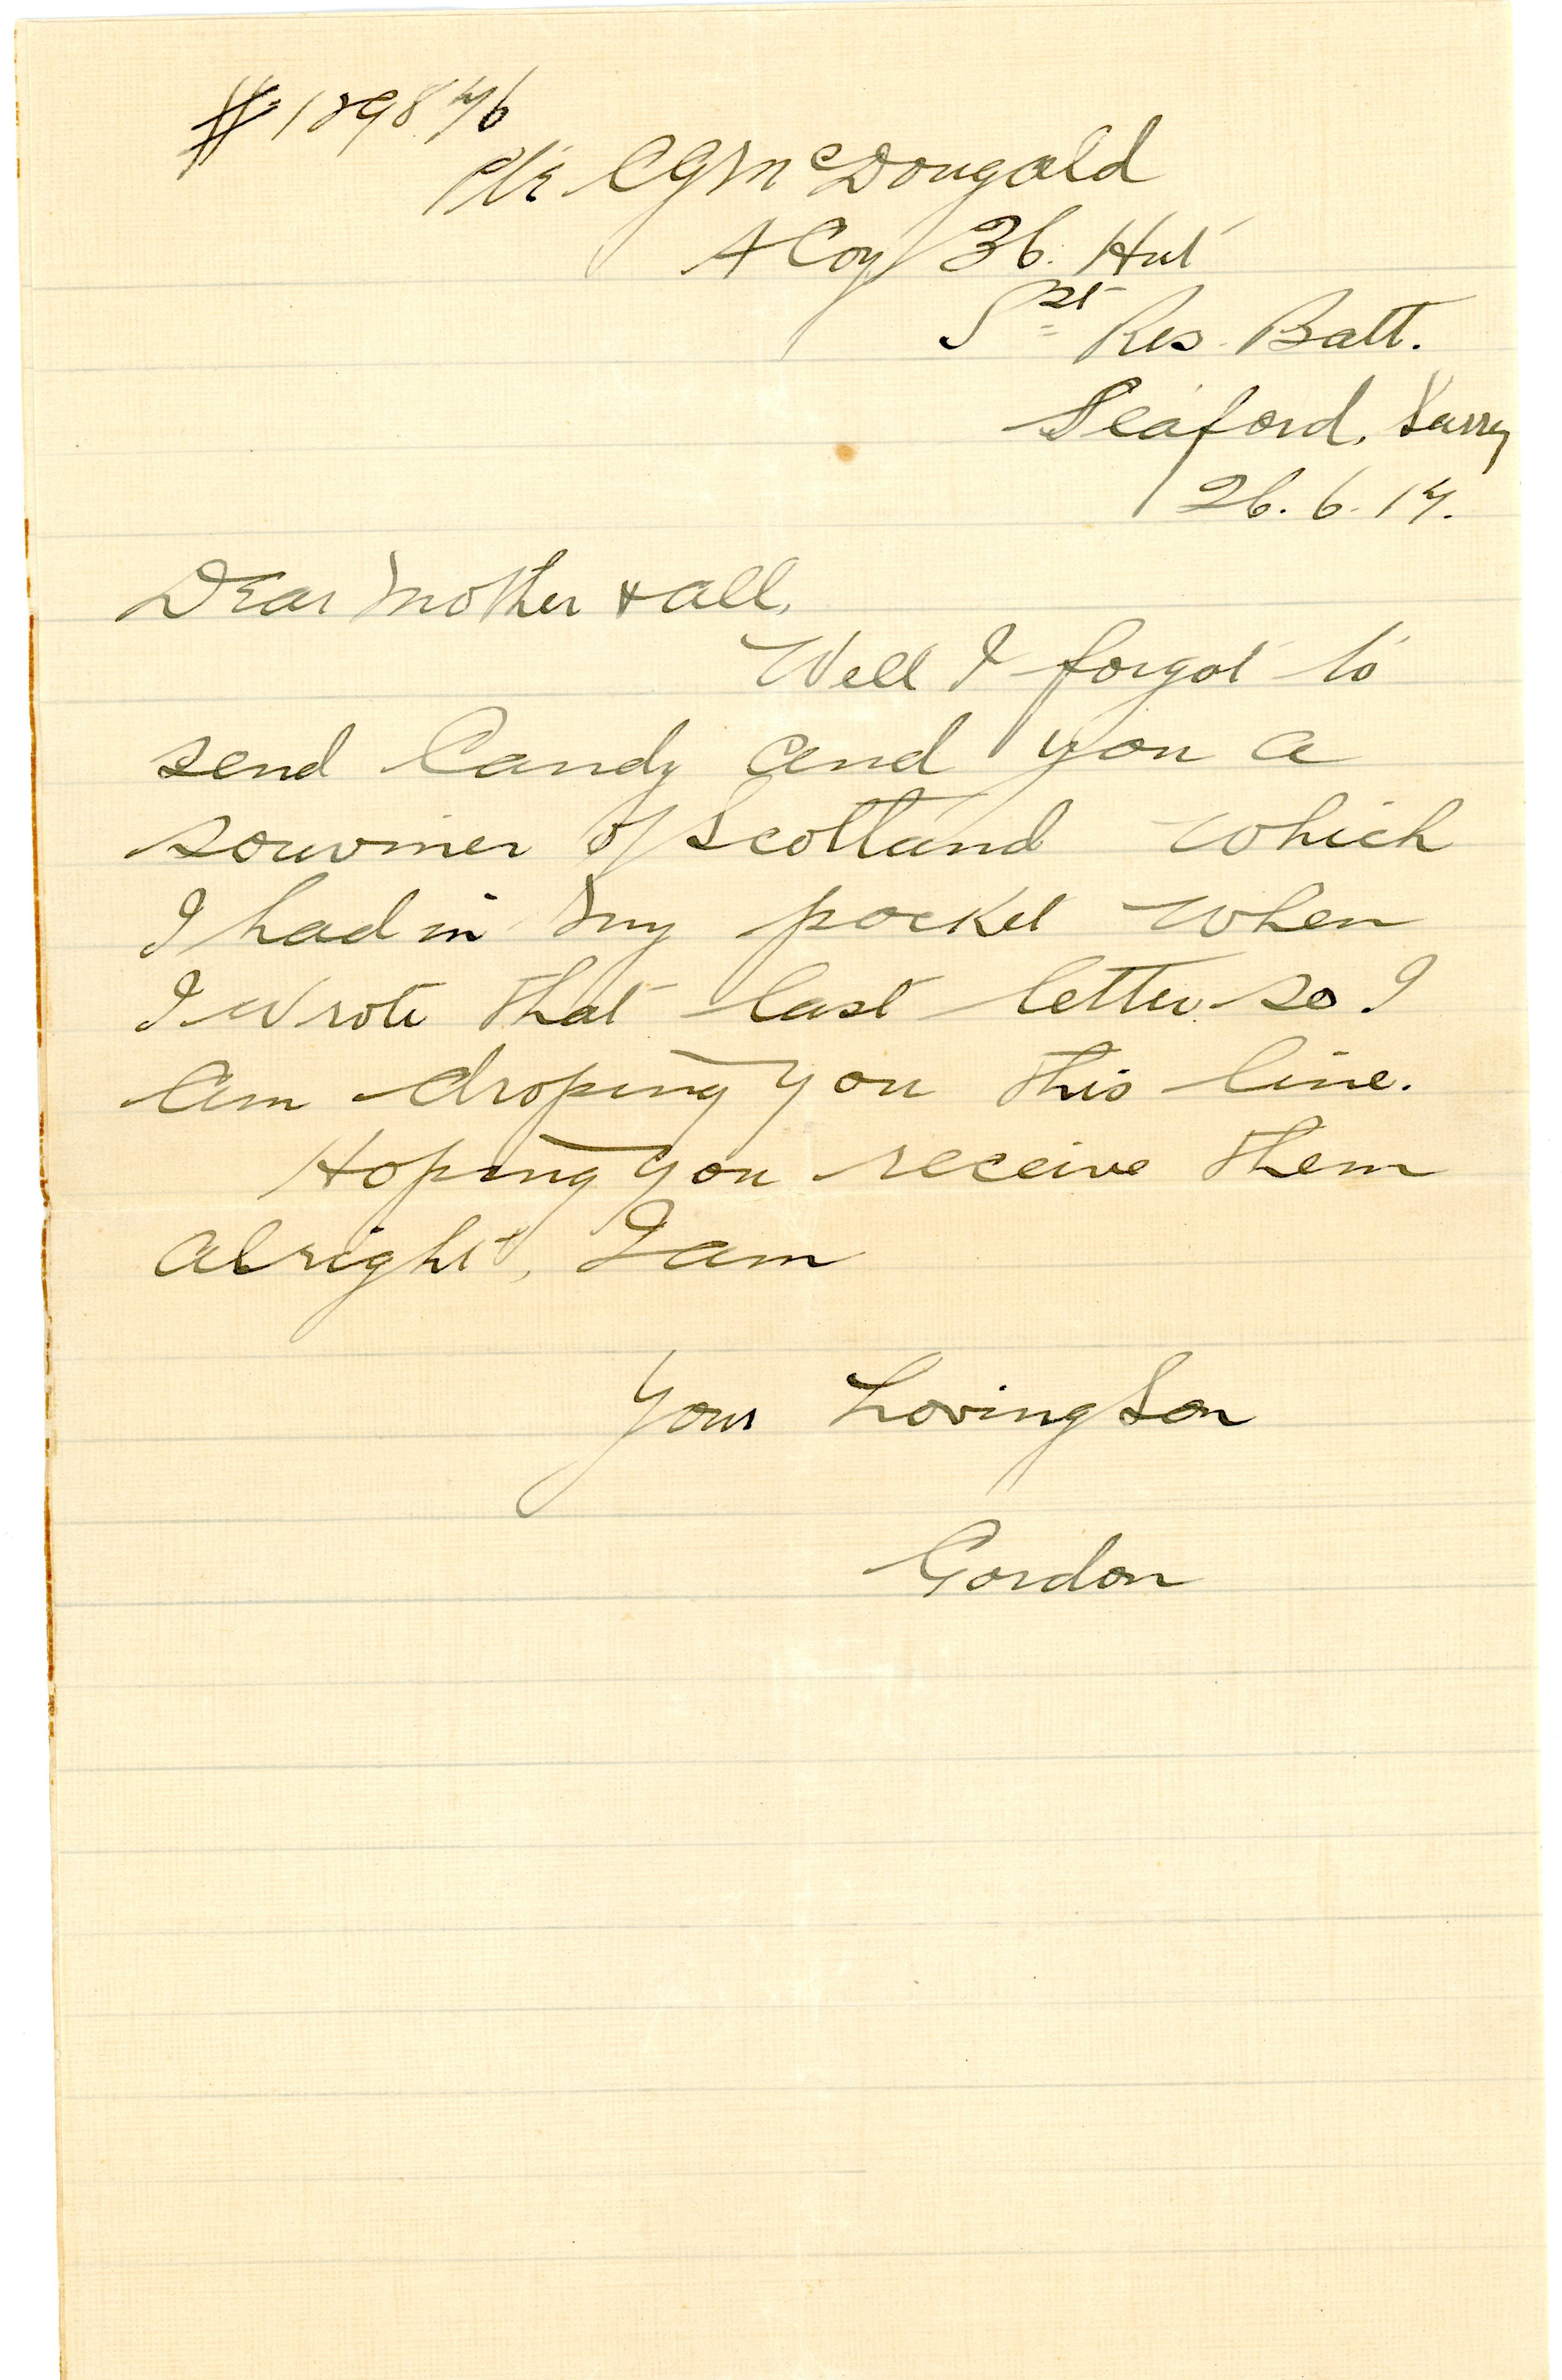 # 129876
Pte C G McDougald
A Coy 36. Hut
1st Res. Batt.
Seaford,
26.6.17.
Dear Mother & all,
Well I forgot to
send Candy and you a
souviner of Scotland which
I had in my pocket when
I wrote that last letter so I
am droping you this line.
Hoping you receive them
alright, I am
Your Loving Son
Gordon